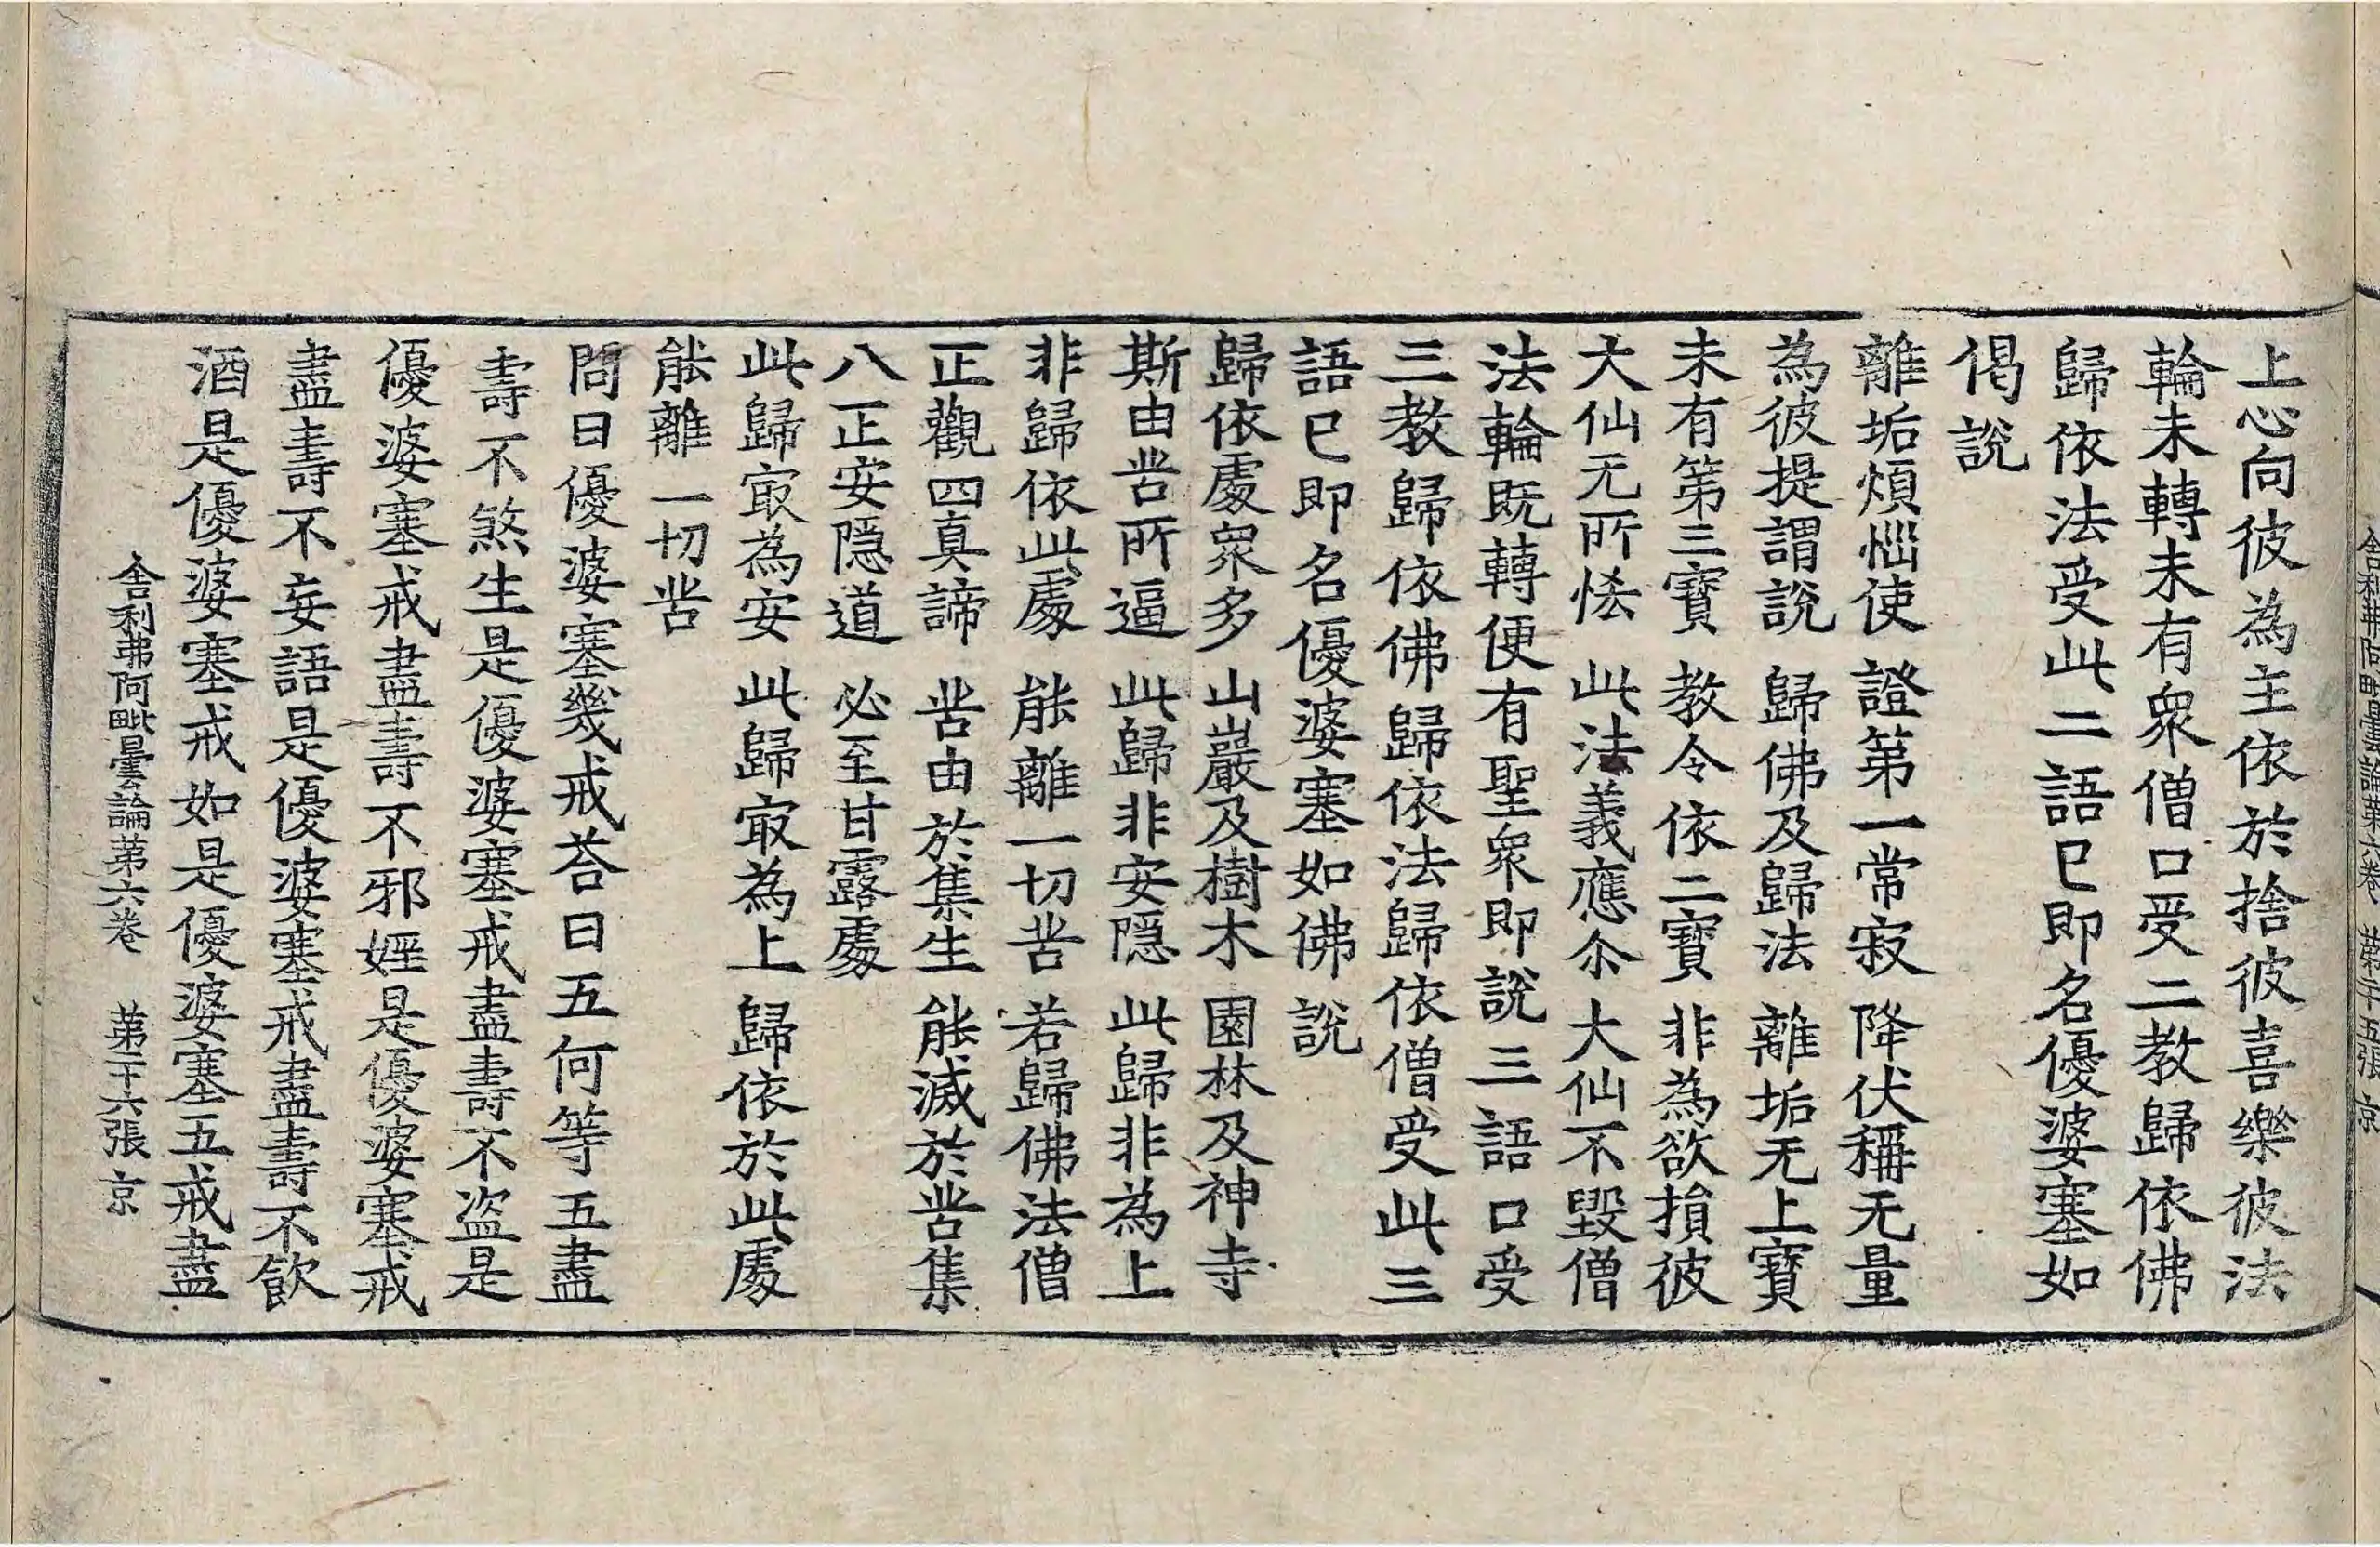 上心向彼為主依於捨彼喜樂彼法
輪未轉未有衆僧口受二教歸依佛
歸依法受此二語已即名優婆塞如
偈說
離垢煩惱使 證第一常寂 降伏稱无量
為彼提謂說 歸佛及歸法 離垢无上寶
未有第三寶 教令依二寶 非為欲損彼
大仙无所恡 此法義應尒 大仙不毀僧
法輪既轉便有聖衆即說三語口受
三教歸依佛歸依法歸依僧受此三
語已即名優婆塞如佛說
歸依處衆多 山巖及樹木 園林及神寺
斯由苦所逼 此歸非安隱 此歸非為上
非歸依此處 能離一切苦 若歸佛法僧
正觀四真諦 苦由於集生 能滅於苦集
八正安隱道 必至甘露處
此歸㝡為安 此歸㝡為上 歸依於此處
能離一切苦
問曰優婆塞幾戒荅曰五何等五盡
壽不煞生是優婆塞戒盡壽不盜是
優婆塞戒盡壽不邪婬是優婆塞戒
盡壽不妄語是優婆塞戒盡壽不飲
酒是優婆塞戒如是優婆塞五戒盡
舍利弗阿毗曇論苐六卷 苐二十六張 京